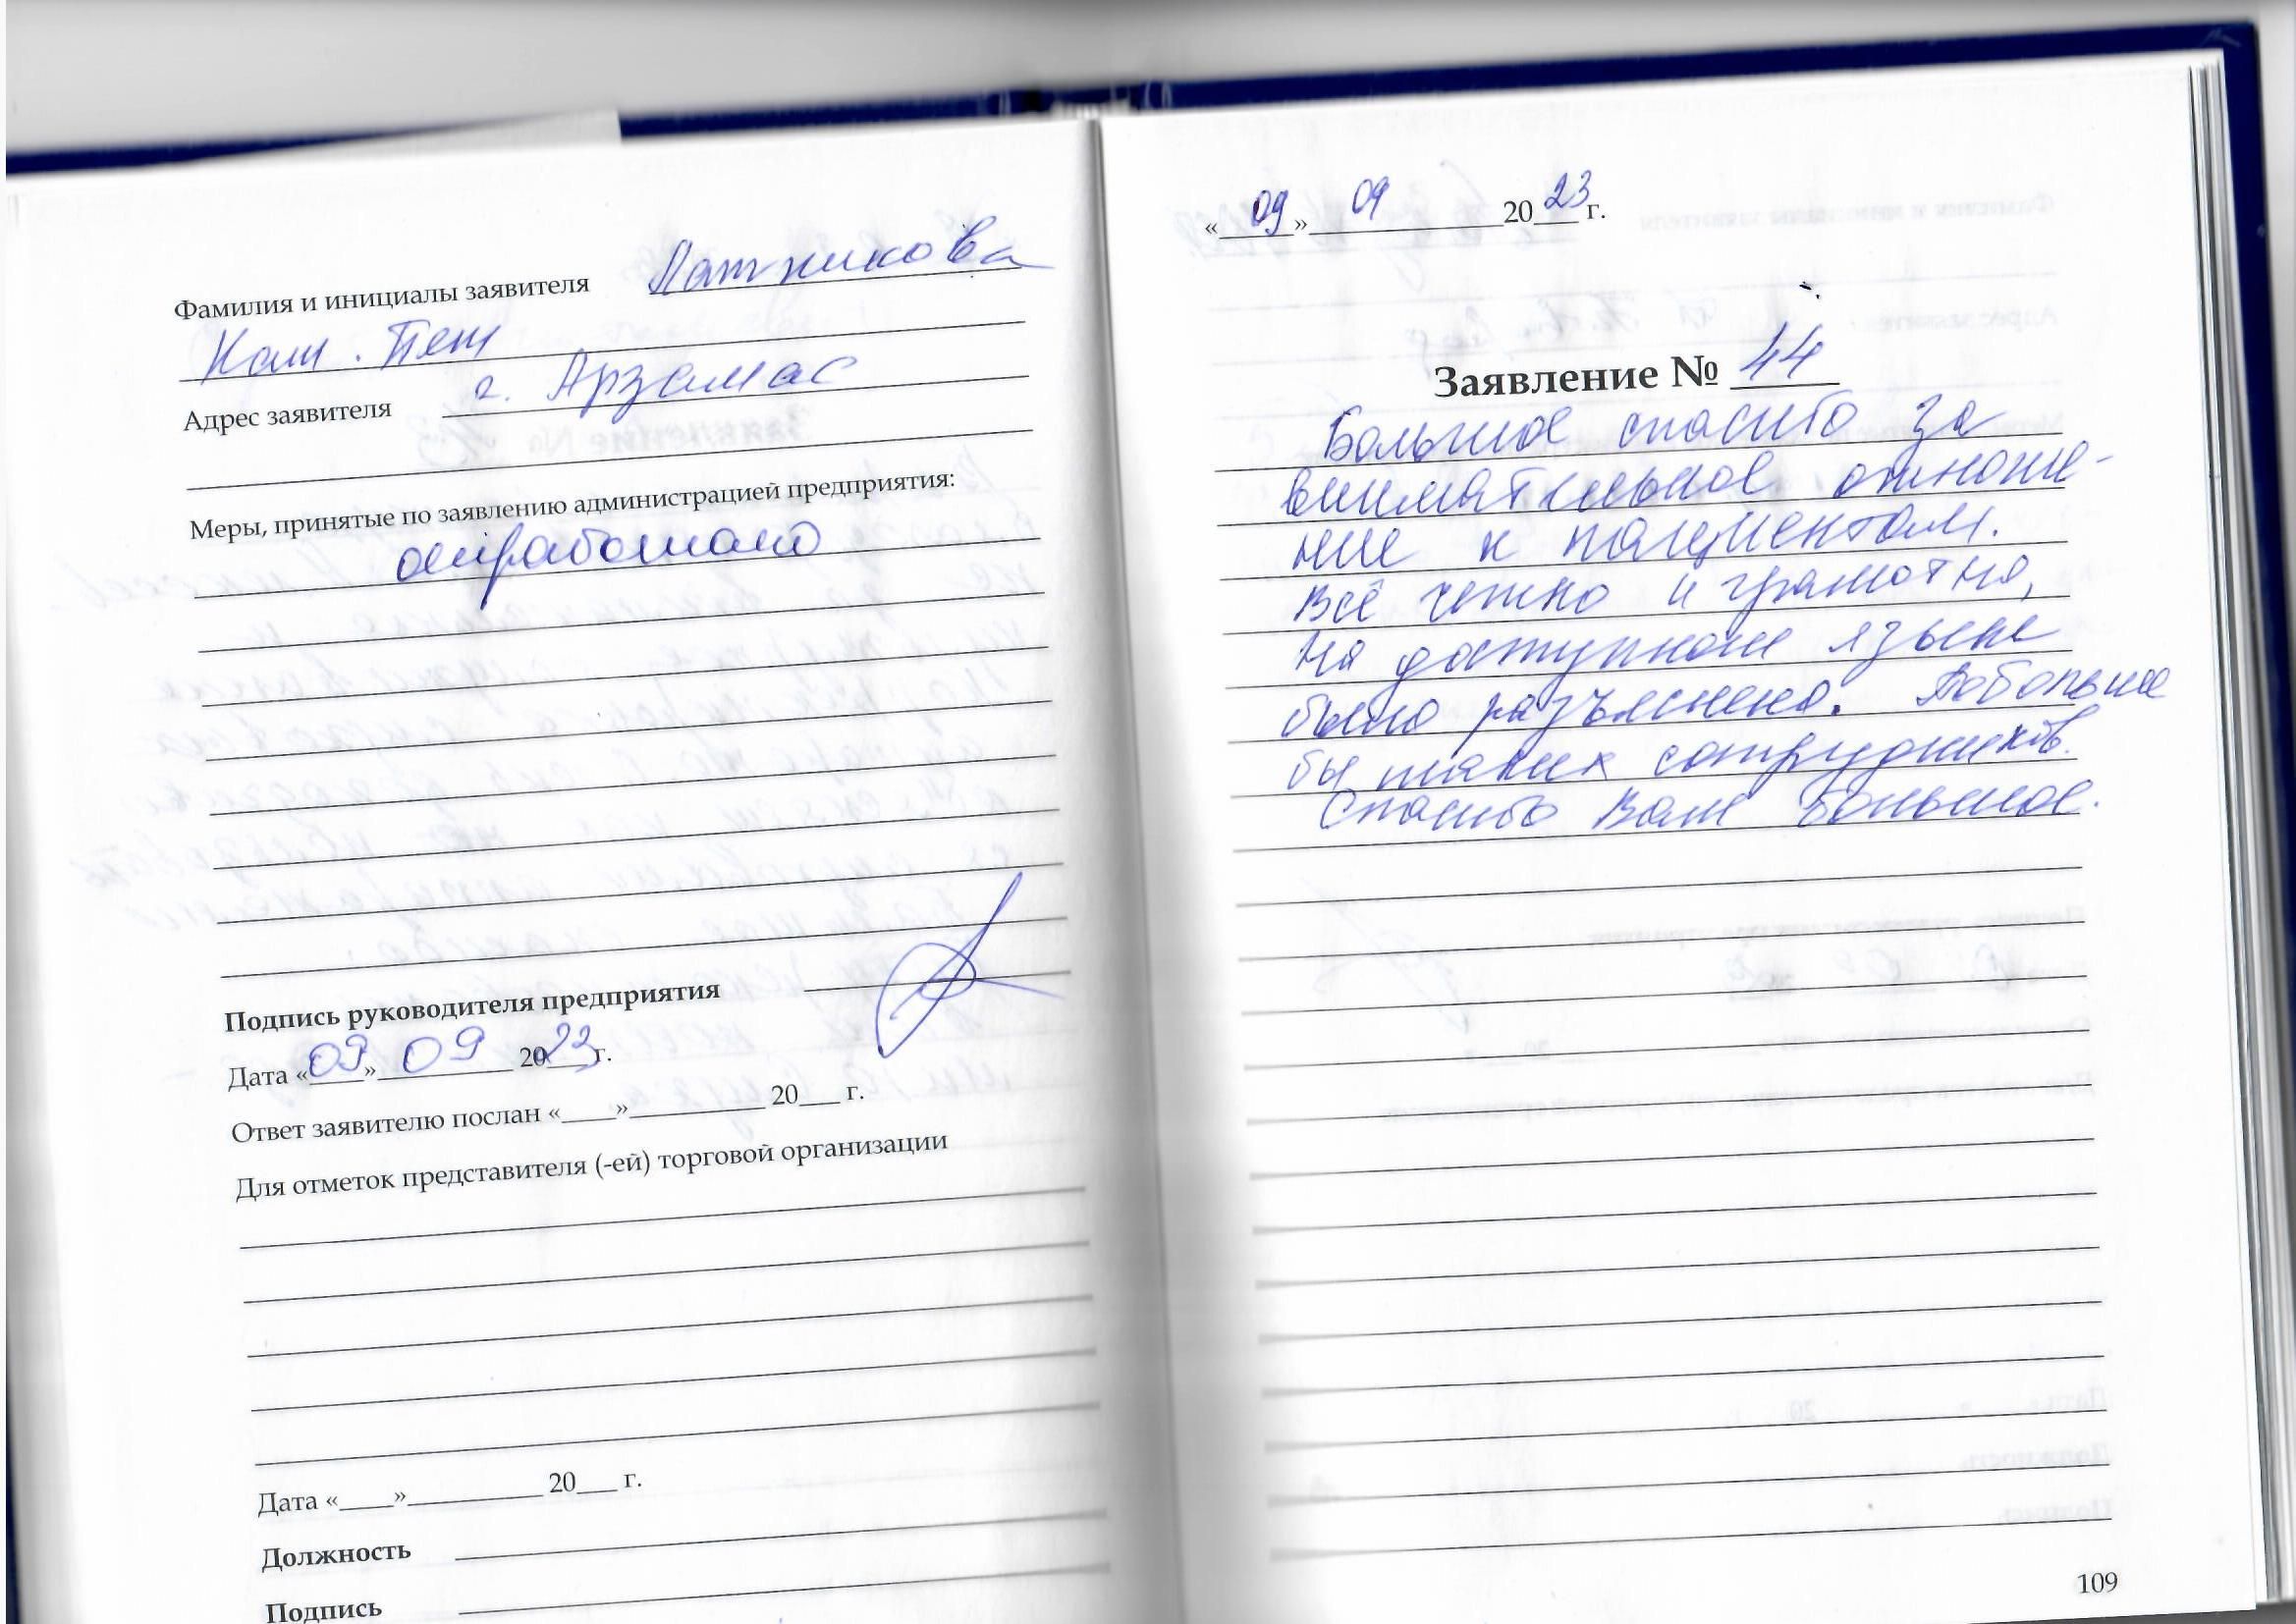 Фамилия и инициалы заявителя Латникова
Нат. Пет
Адрес заявителя г. Арзамас
Меры, принятые по заявлению администрацией предприятия:
отработано
Подпись руководителя предприятия
Дата «09» 09 2023г.
Ответ заявителю послан «____»__________ 20___ г.
Для отметок представителя (-ей) торговой организации
Дата «____»__________ 20___ г.
Должность
Подпись
«09» 09 2023 г.
Заявление № 44
Большое спасибо за
внимательное отноше-
ние к пациентам.
Всё четко и грамотно,
на доступном языке
было разъяснено. Побольше
бы таких сотрудников.
Спасибо Вам большое.
109